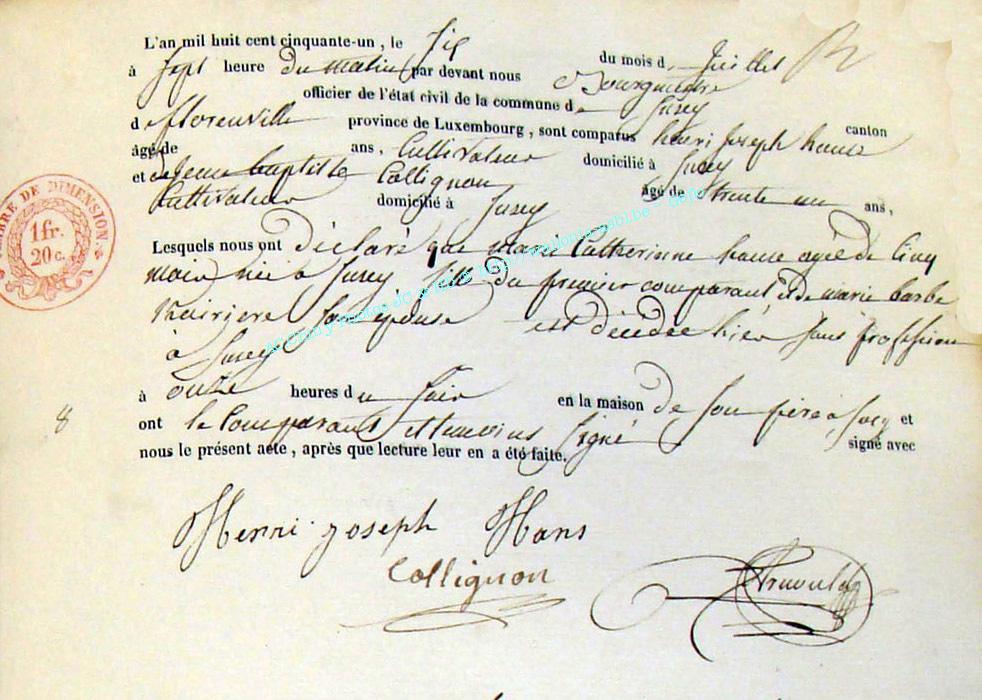 L'an mil huit cent cinquante-un, le six du mois d. Juillet
à sept heure du matin par devant nous Bourguestre
officier de l'état civil de la commune de Jusey canton
de florenville province de Luxembourg, sont comparus henri Joseph hanse
âgé de ans, Cultivateur domicilié à Jusey
et de Jean baptiste Collignon âgé de trente un ans,
Cultivateur domicilié à Jusey
Lesquels nous ont déclaré que marie Catherinne hanse agée de Cinq
mois née à Jusey fille du premier comparant et de marie barbe
son épouse est décédée hier sans proffession
à Jusey
à onze heures du soir en la maison de son père à Jusey et
ont le Comparant et temoins signé signé avec
nous le présent acte, après que lecture leur en a été faite.
8
Henri joseph Hans
Collignon
TIMBRE DE DIMENSION.
1 fr.
20 c.